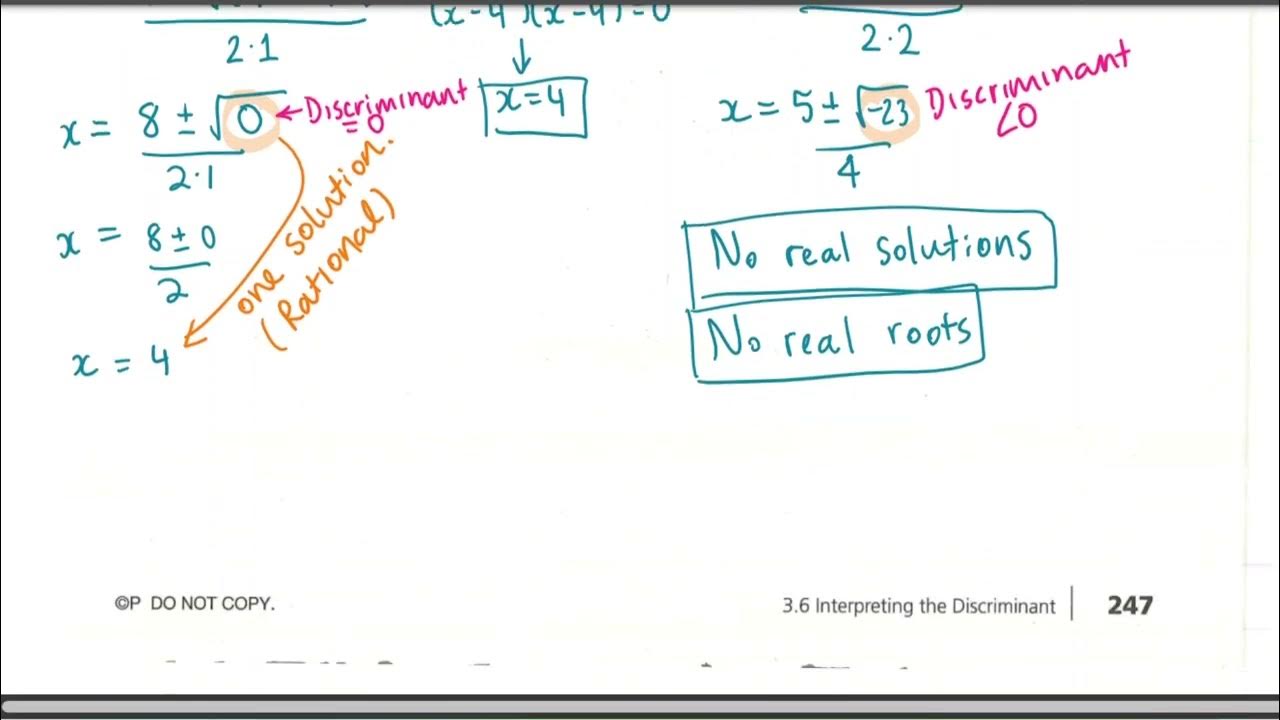 2·1
(x-4)(x-4)=0
x = 8 ± √0
2·1
← Discriminant
= 0
x=4
x = 8 ± 0
2
x = 4
one solution.
(Rational)
2·2
x = 5 ± √-23
4
Discriminant
<0
No real solutions
No real roots
©P DO NOT COPY.
3.6 Interpreting the Discriminant
247